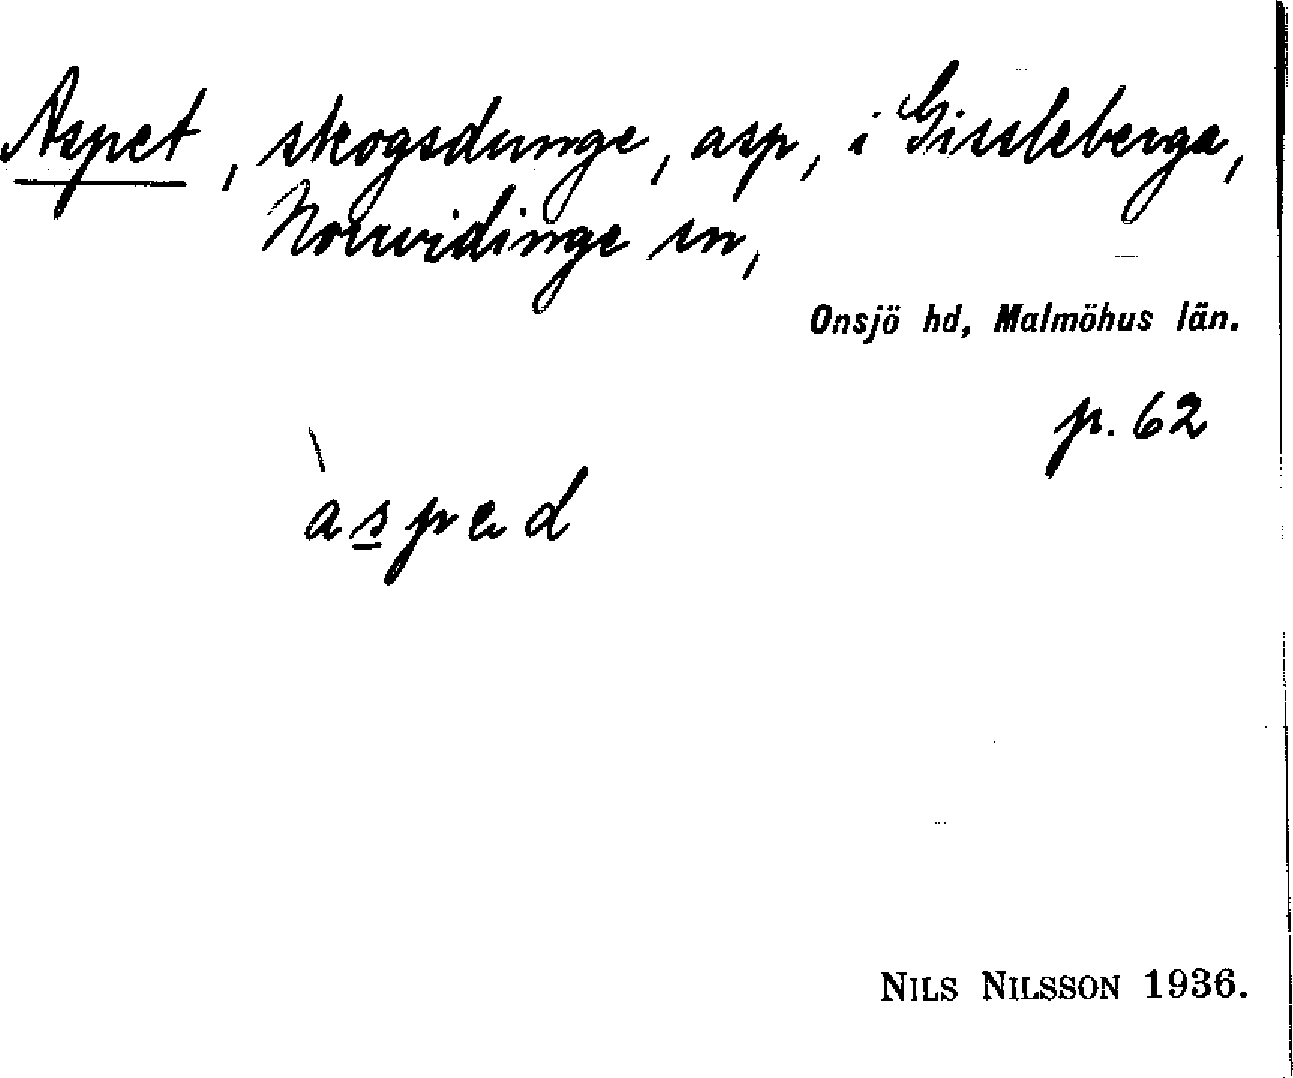 Aspet, skogsdunge, asp, i Gissleberga,
Norrvidinge sn,
Onsjö hd, Malmöhus län.
p. 62
àsped
NILS NILSSON 1936.